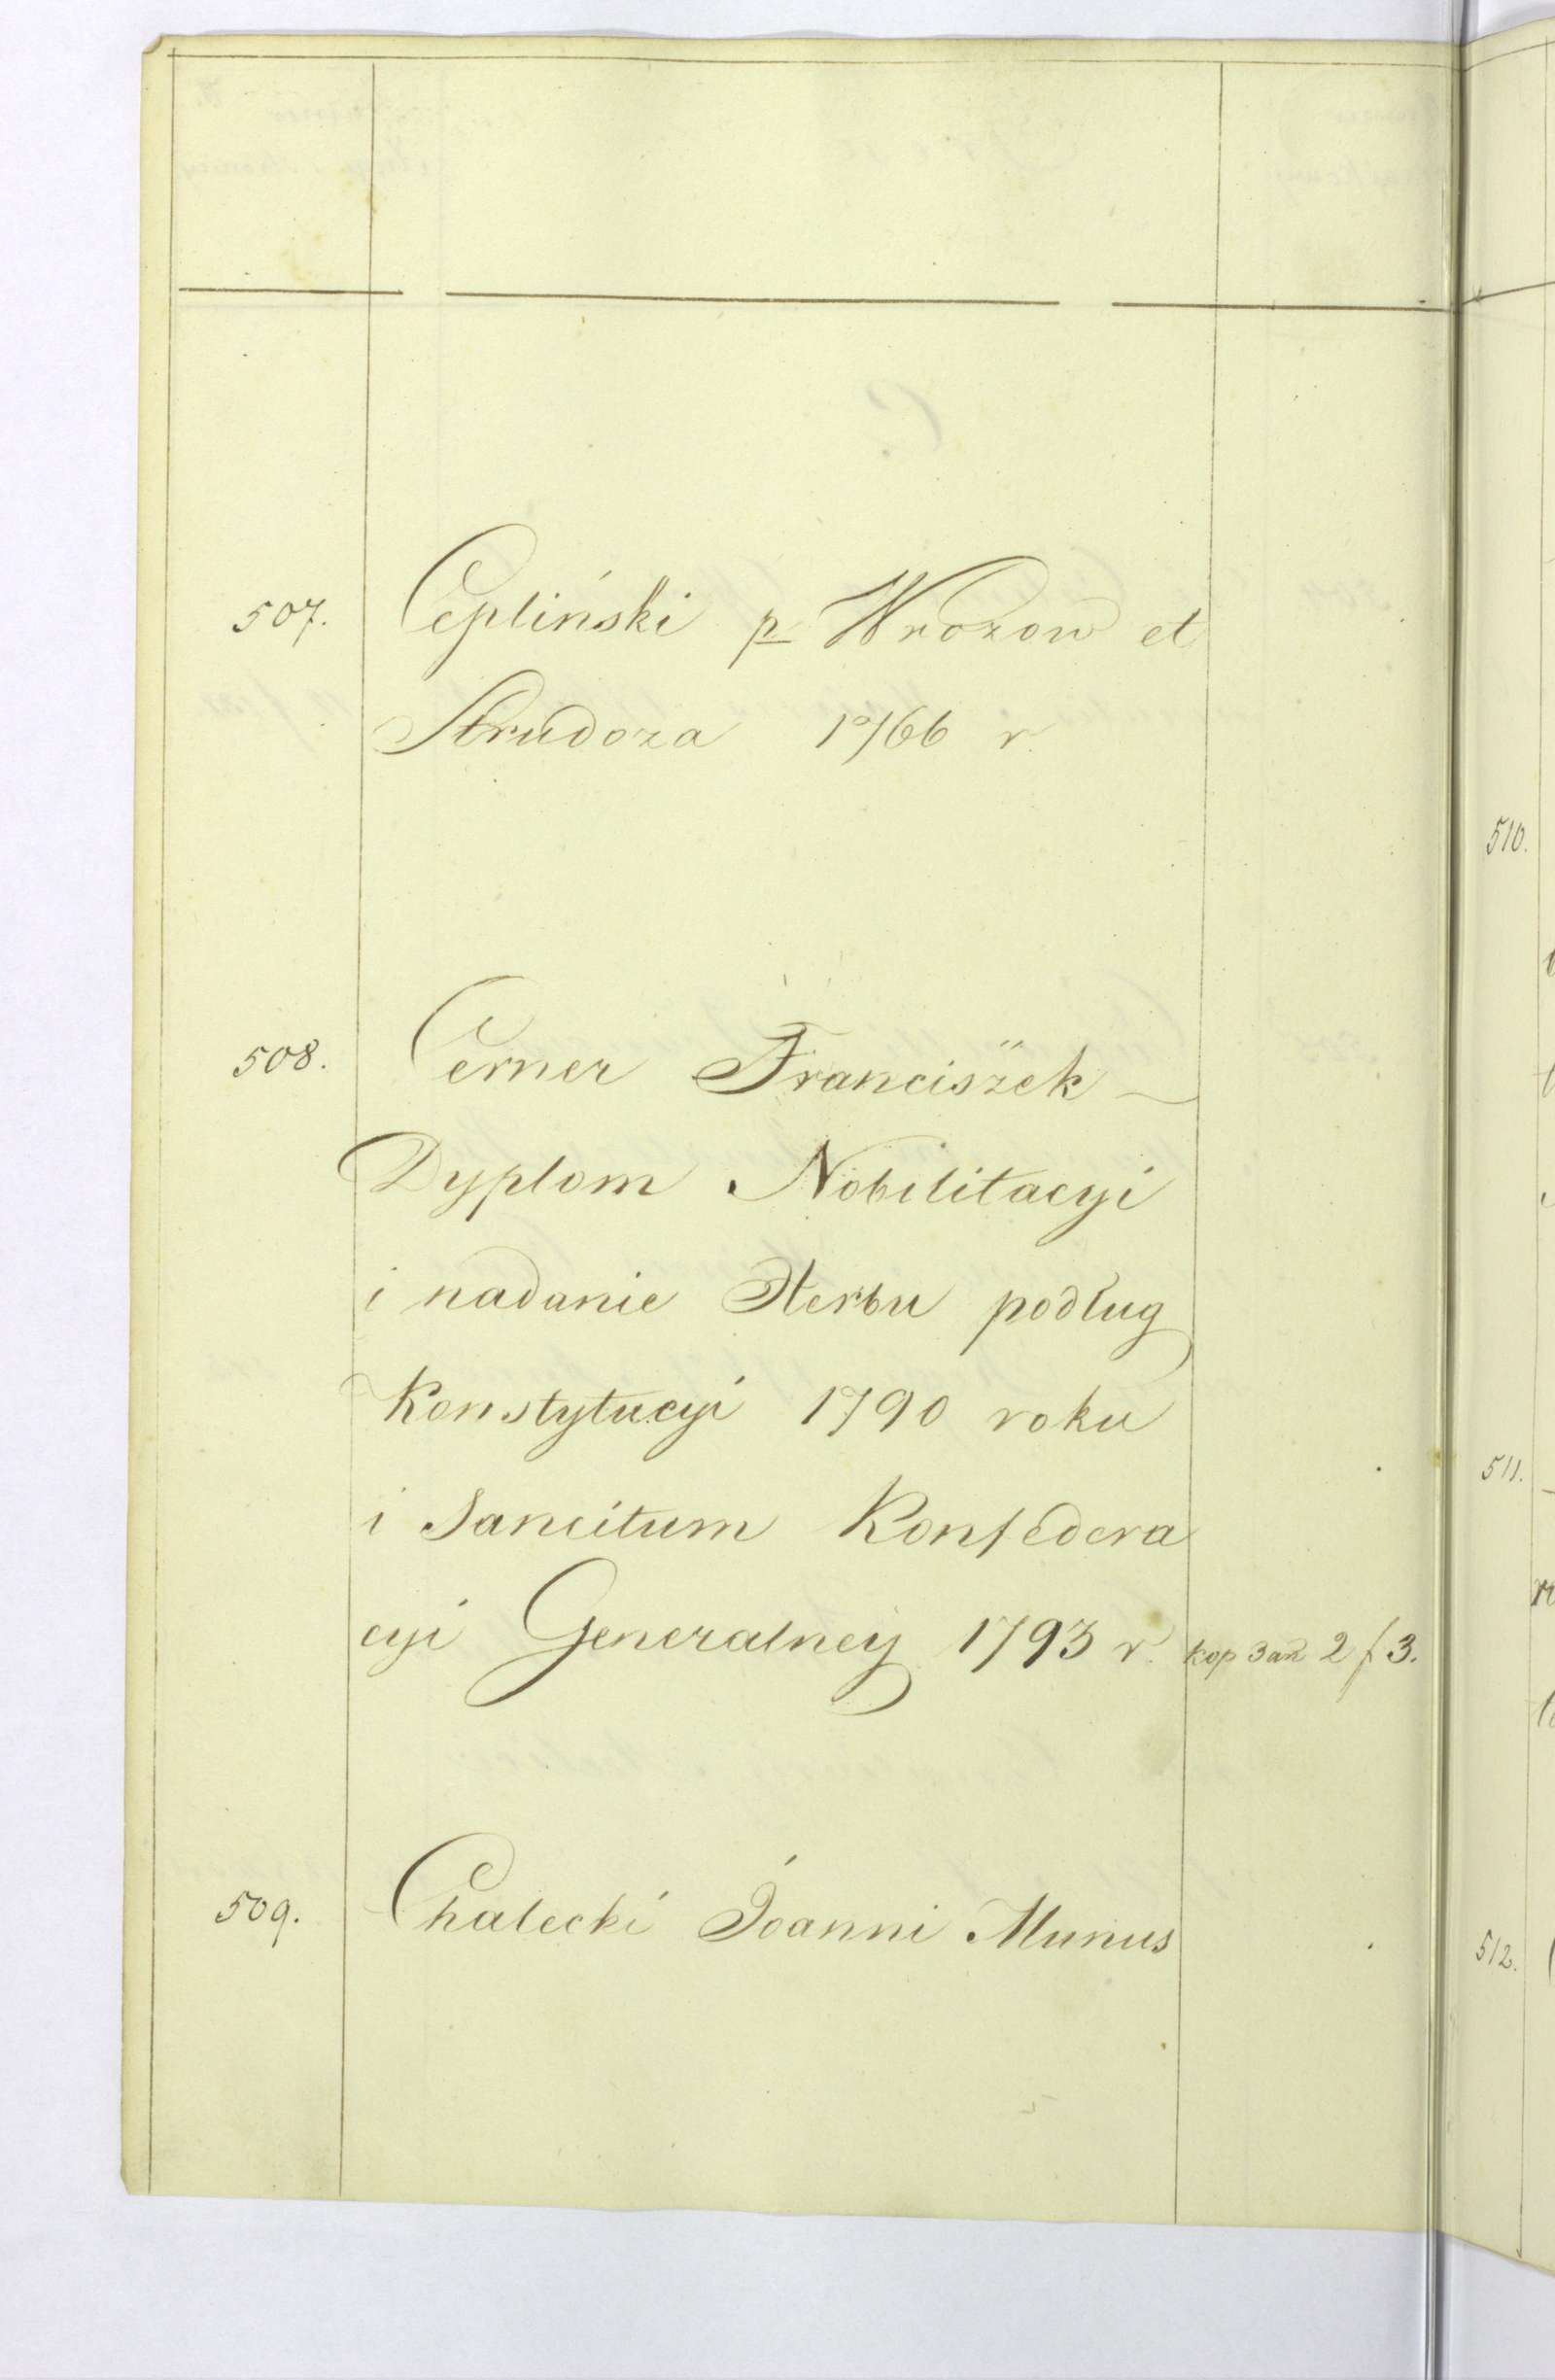 507. Cepliński p Wrozow et
Strudoza 1766 r.
508. Cerner Franciszek
Dyplom Nobilitacyi
i nadanie Herbu podług
Konstytucyi 1790 roku
i Sancitum Konfedera
cyi Generalney 1793 r. kop 2 f 3.
509. Chalecki Joanni Munus
510.
511.
512.